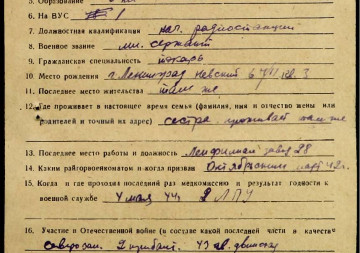 5. Образование
6. На ВУС 1
7. Должностная квалификация нач. радиостанции
8. Военное звание мл. сержант
9. Гражданская специальность токарь
10. Место рождения г. Ленинград Невский
11. Последнее место жительства там же
12. Где проживает в настоящее время семья (фамилия, имя и отчество жены или
родителей и точный их адрес) сестра проживает там же
13. Последнее место работы и должность завод 28
14. Каким райгорвоенкоматом и когда призван Октябрьским 42 г.
15. Когда и где проходил последний раз медкомиссию и результат годности к
военной службе 4 мая 44 г. 2 ЛПУ
16. Участие в Отечественной войне (в составе какой последней части и качестве
43 гв. дивизии